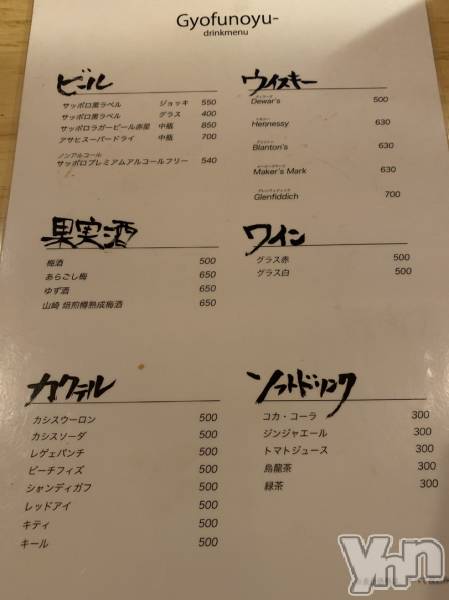 Gyofunoyu-
drinkmenu
ビール
サッポロ黒ラベル ジョッキ 550
サッポロ黒ラベル グラス 400
サッポロラガービール赤星 中瓶 850
アサヒスーパードライ 中瓶 700
ノンアルコール
サッポロプレミアムアルコールフリー 540
果実酒
梅酒 500
あらごし梅 650
ゆず酒 650
山崎 焙煎樽熟成梅酒 650
カクテル
カシスウーロン 500
カシスソーダ 500
レゲェパンチ 500
ピーチフィズ 500
シャンディガフ 500
レッドアイ 500
キティ 500
キール 500
ウイスキー
Dewar's 500
Hennessy 630
Blanton's 630
Maker's Mark 630
Glenfiddich 700
ワイン
グラス赤 500
グラス白 500
ソフトドリンク
コカ・コーラ 300
ジンジャエール 300
トマトジュース 300
烏龍茶 300
緑茶 300